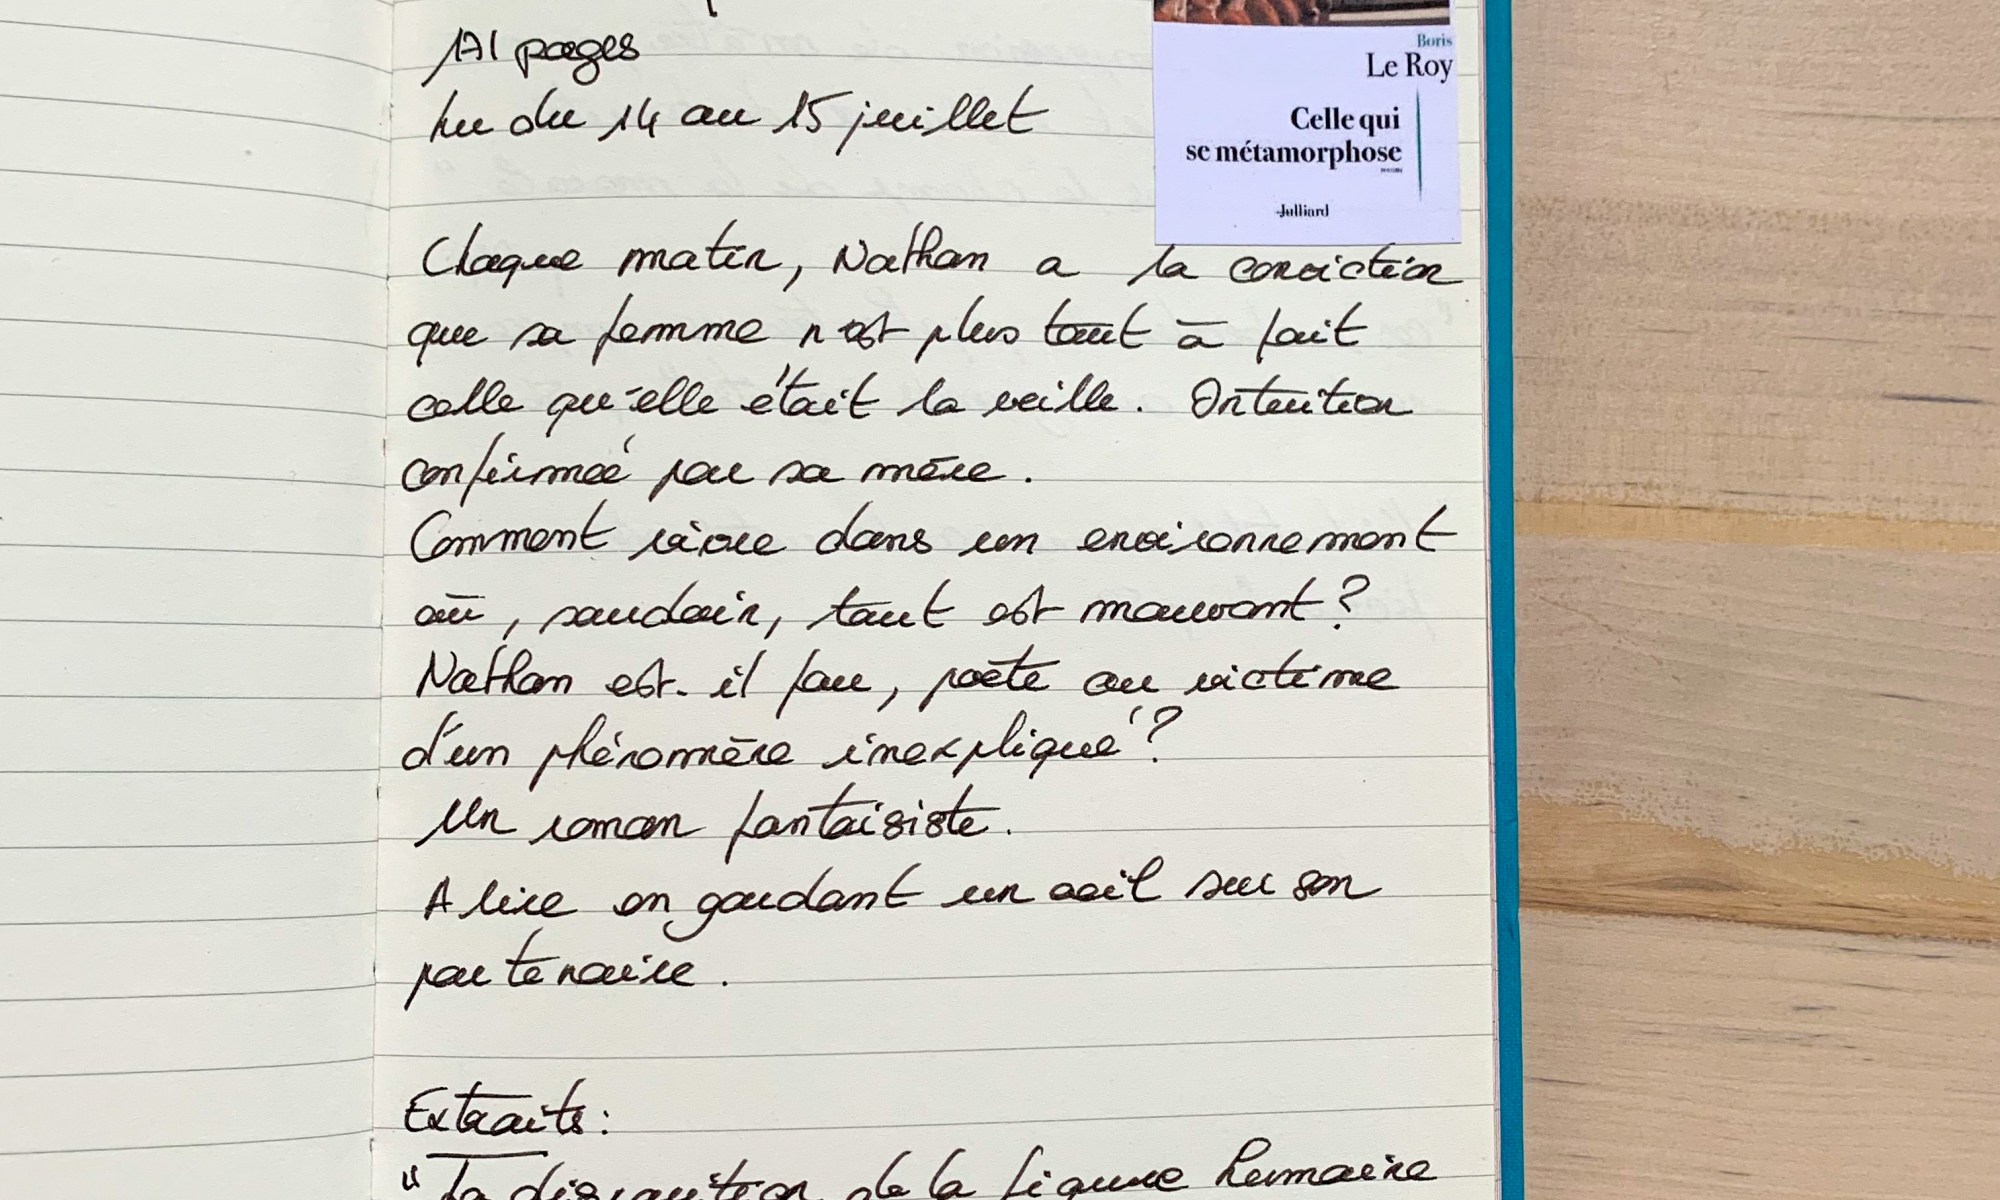 171 pages
Lu du 14 au 15 juillet
Boris
Le Roy
Celle qui
se métamorphose
Julliard
Chaque matin, Nathan a la conviction
que sa femme n'est plus tout à fait
celle qu'elle était la veille. Intuition
confirmée par sa mère.
Comment vivre dans un environnement
où, soudain, tout est mouvant ?
Nathan est-il fou, poète ou victime
d'un phénomène inexpliqué ?
Un roman fantaisiste.
A lire en gardant un oeil sur son
partenaire.
Extraits :
"La disparition de la figure humaine